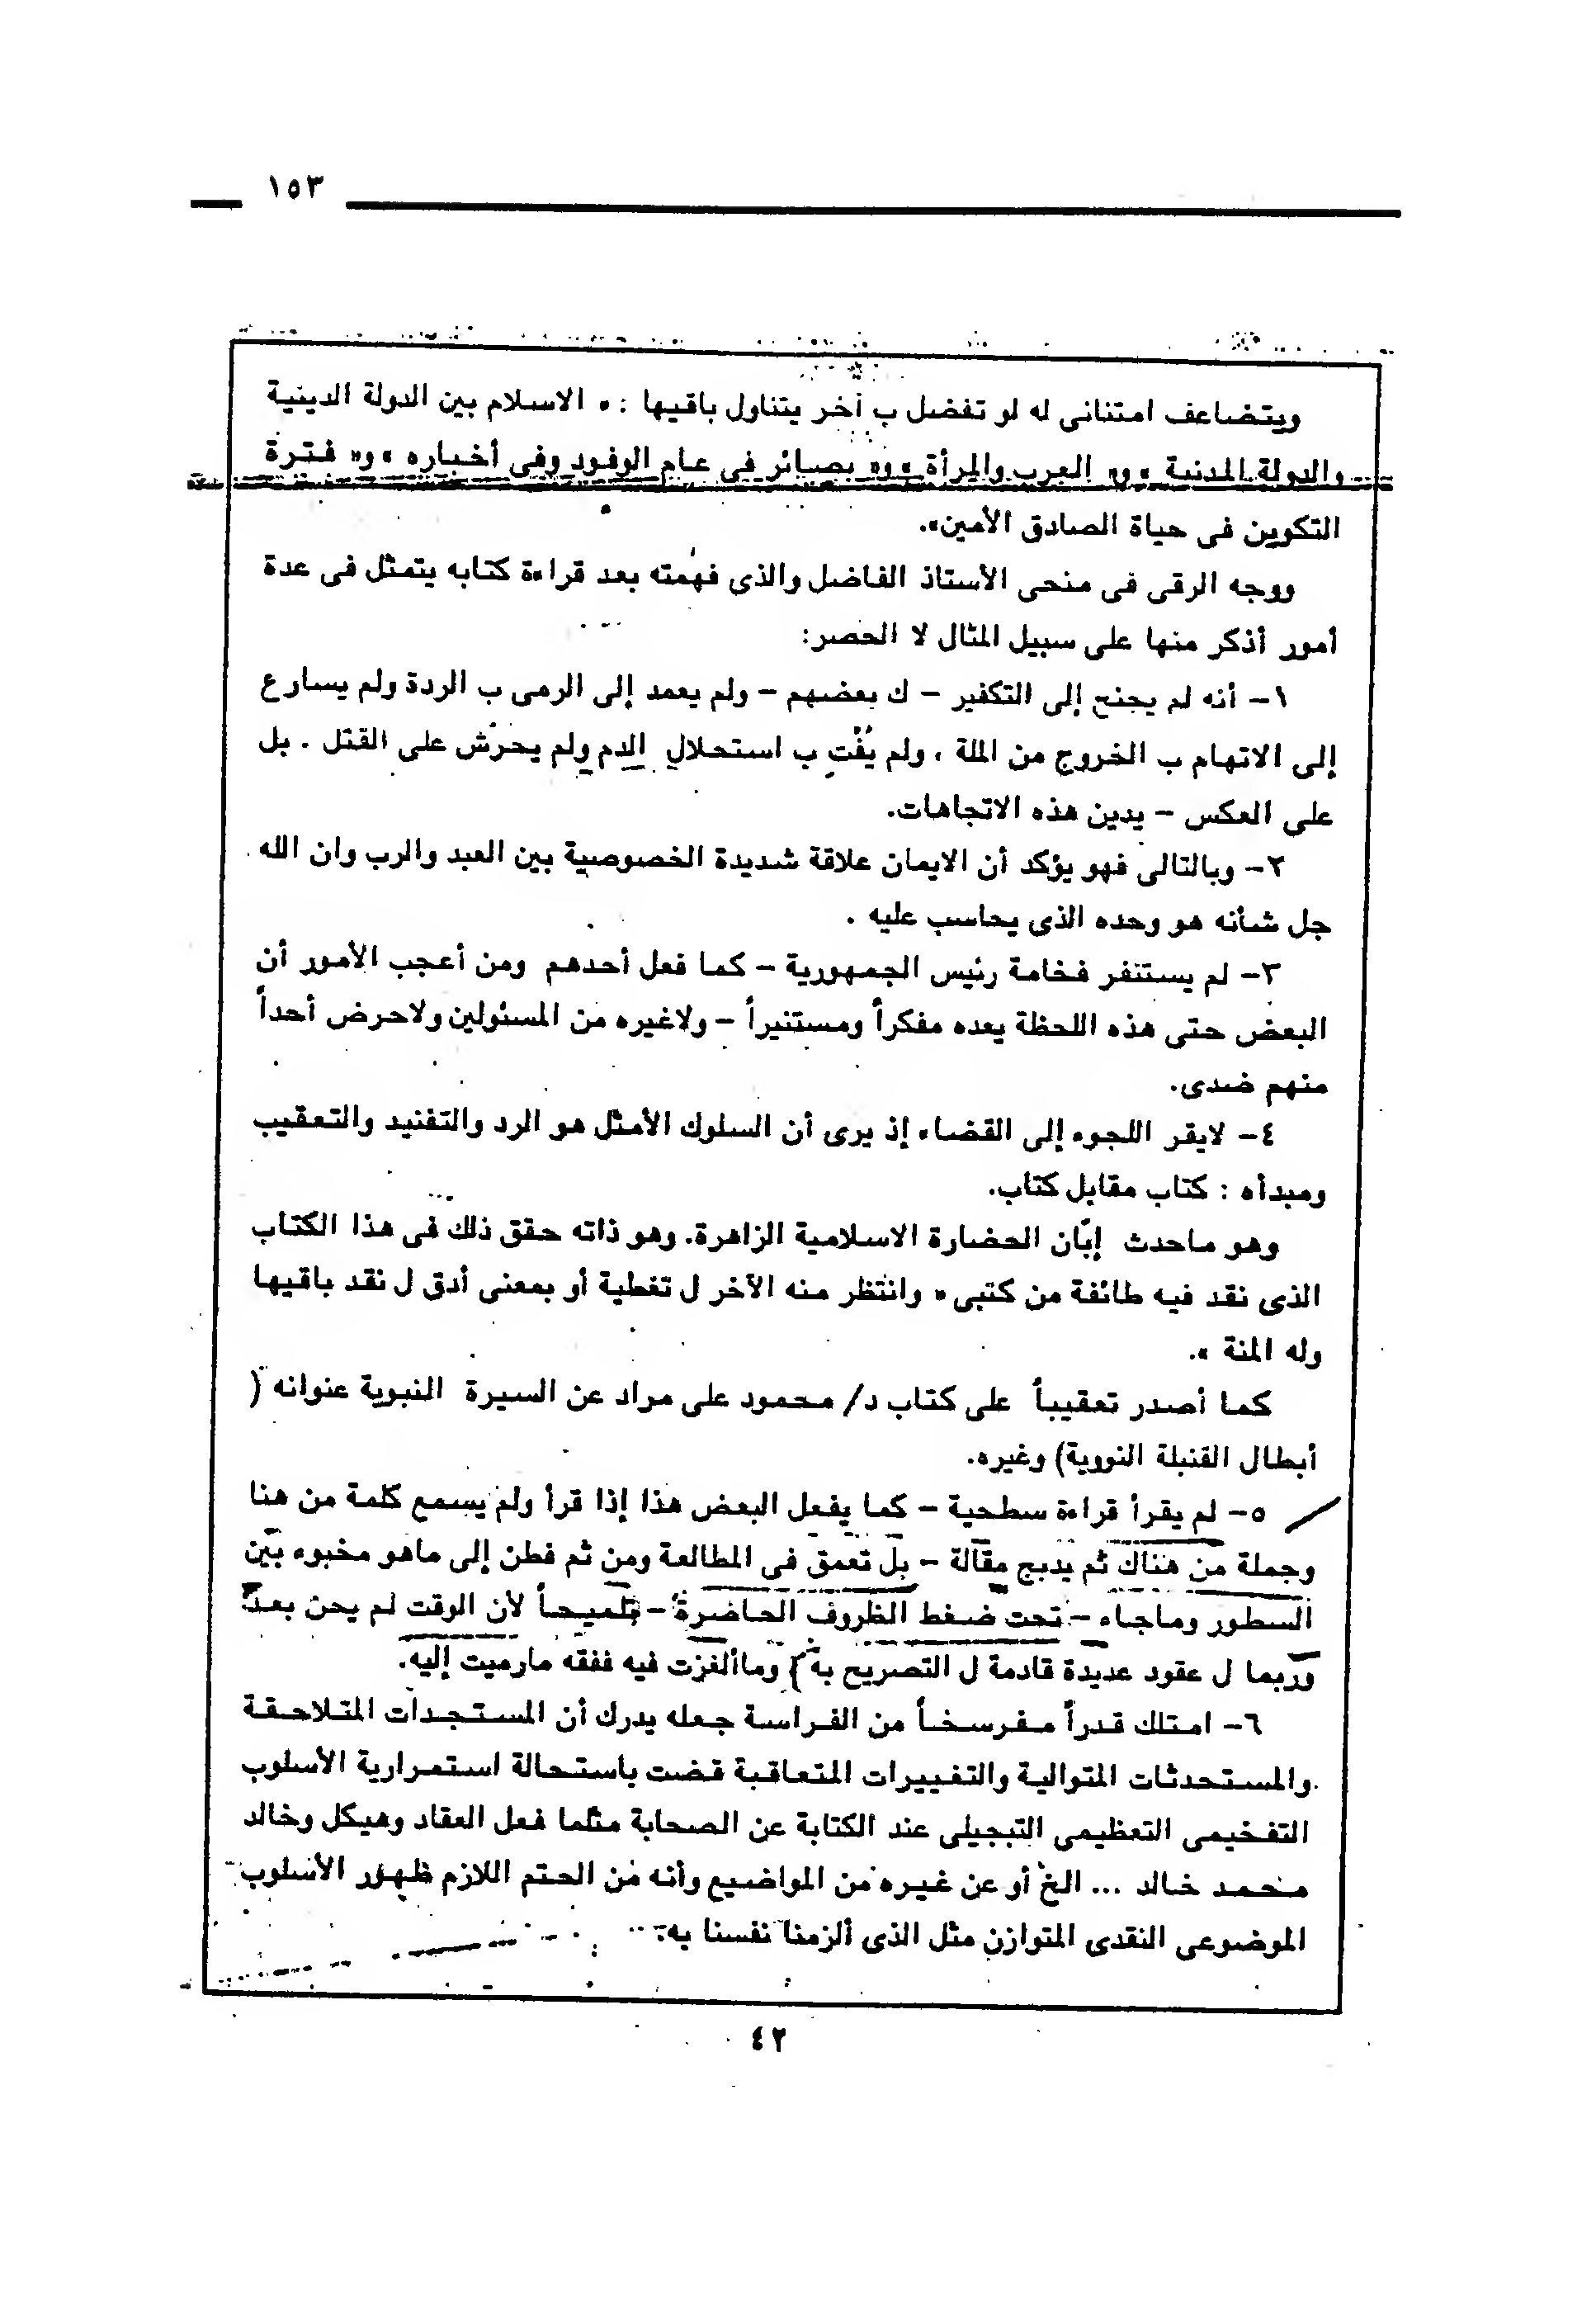 ١٥٣
ويتضاعف امتنانى له لو تفضل ب آخر يتناول باقيها : « الاسلام بين الدولة الدينية
والدولة المدنية » و« العرب والمرأة » و« بصائر فى عام الوفود وفى أخباره » و« فترة
التكوين فى حياة الصادق الأمين».
ووجه الرقى فى منحى الأستاذ الفاضل والذى فهمته بعد قراءة كتابه يتمثل فى عدة
أمور أذكر منها على سبيل المثال لا الحصر:
١- أنه لم يجنح إلى التكفير - ك بعضهم - ولم يعمد إلى الرمى ب الردة ولم يسارع
إلى الاتهام ب الخروج من الملة ، ولم يُفْتِ ب استحلال الدم ولم يحرّش على القتل . بل
على العكس - يدين هذه الاتجاهات.
٢- وبالتالى فهو يؤكد أن الايمان علاقة شديدة الخصوصية بين العبد والرب وان الله
جل شأنه هو وحده الذى يحاسب عليه .
٣- لم يستنفر فخامة رئيس الجمهورية - كما فعل أحدهم ومن أعجب الأمور أن
البعض حتى هذه اللحظة يعده مفكراً ومستنيراً - ولاغيره من المسئولين ولاحرض أحداً
منهم ضدى.
٤- لايقر اللجوء إلى القضاء إذ يرى أن السلوك الأمثل هو الرد والتفنيد والتعقيب
ومبدأه : كتاب مقابل كتاب.
وهو ماحدث إبّان الحضارة الاسلامية الزاهرة. وهو ذاته حقق ذلك فى هذا الكتاب
الذى نقد فيه طائفة من كتبى « وانتظر منه الآخر ل تغطية أو بمعنى أدق ل نقد باقيها
وله المنة ».
كما أصدر تعقيباً على كتاب د/ محمود على مراد عن السيرة النبوية عنوانه (
أبطال القنبلة النووية) وغيره.
٥- لم يقرأ قراءة سطحية - كما يفعل البعض هذا إذا قرأ ولم يسمع كلمة من هنا
وجملة من هناك ثم يدبج مقالة - بل تعمق فى المطالعة ومن ثم فطن إلى ماهو مخبوء بين
السطور وماجاء - تحت ضغط الظروف الحاضرة - تلميحاً لأن الوقت لم يحن بعد
وربما ل عقود عديدة قادمة ل التصريح به) وماألغزت فيه ففقه مارميت إليه.
٦- امتلك قدراً مفرسخاً من الفراسة جعله يدرك أن المستجدات المتلاحقة
والمستحدثات المتوالية والتغييرات المتعاقبة قضت باستحالة استمرارية الأسلوب
التفخيمى التعظيمى التبجيلى عند الكتابة عن الصحابة مثلما فعل العقاد وهيكل وخالد
محمد خالد ... الخ أو عن غيره من المواضيع وأنه من الحتم اللازم ظهور الأسلوب
الموضوعى النقدى المتوازن مثل الذى ألزمنا نفسنا به.
٤٢